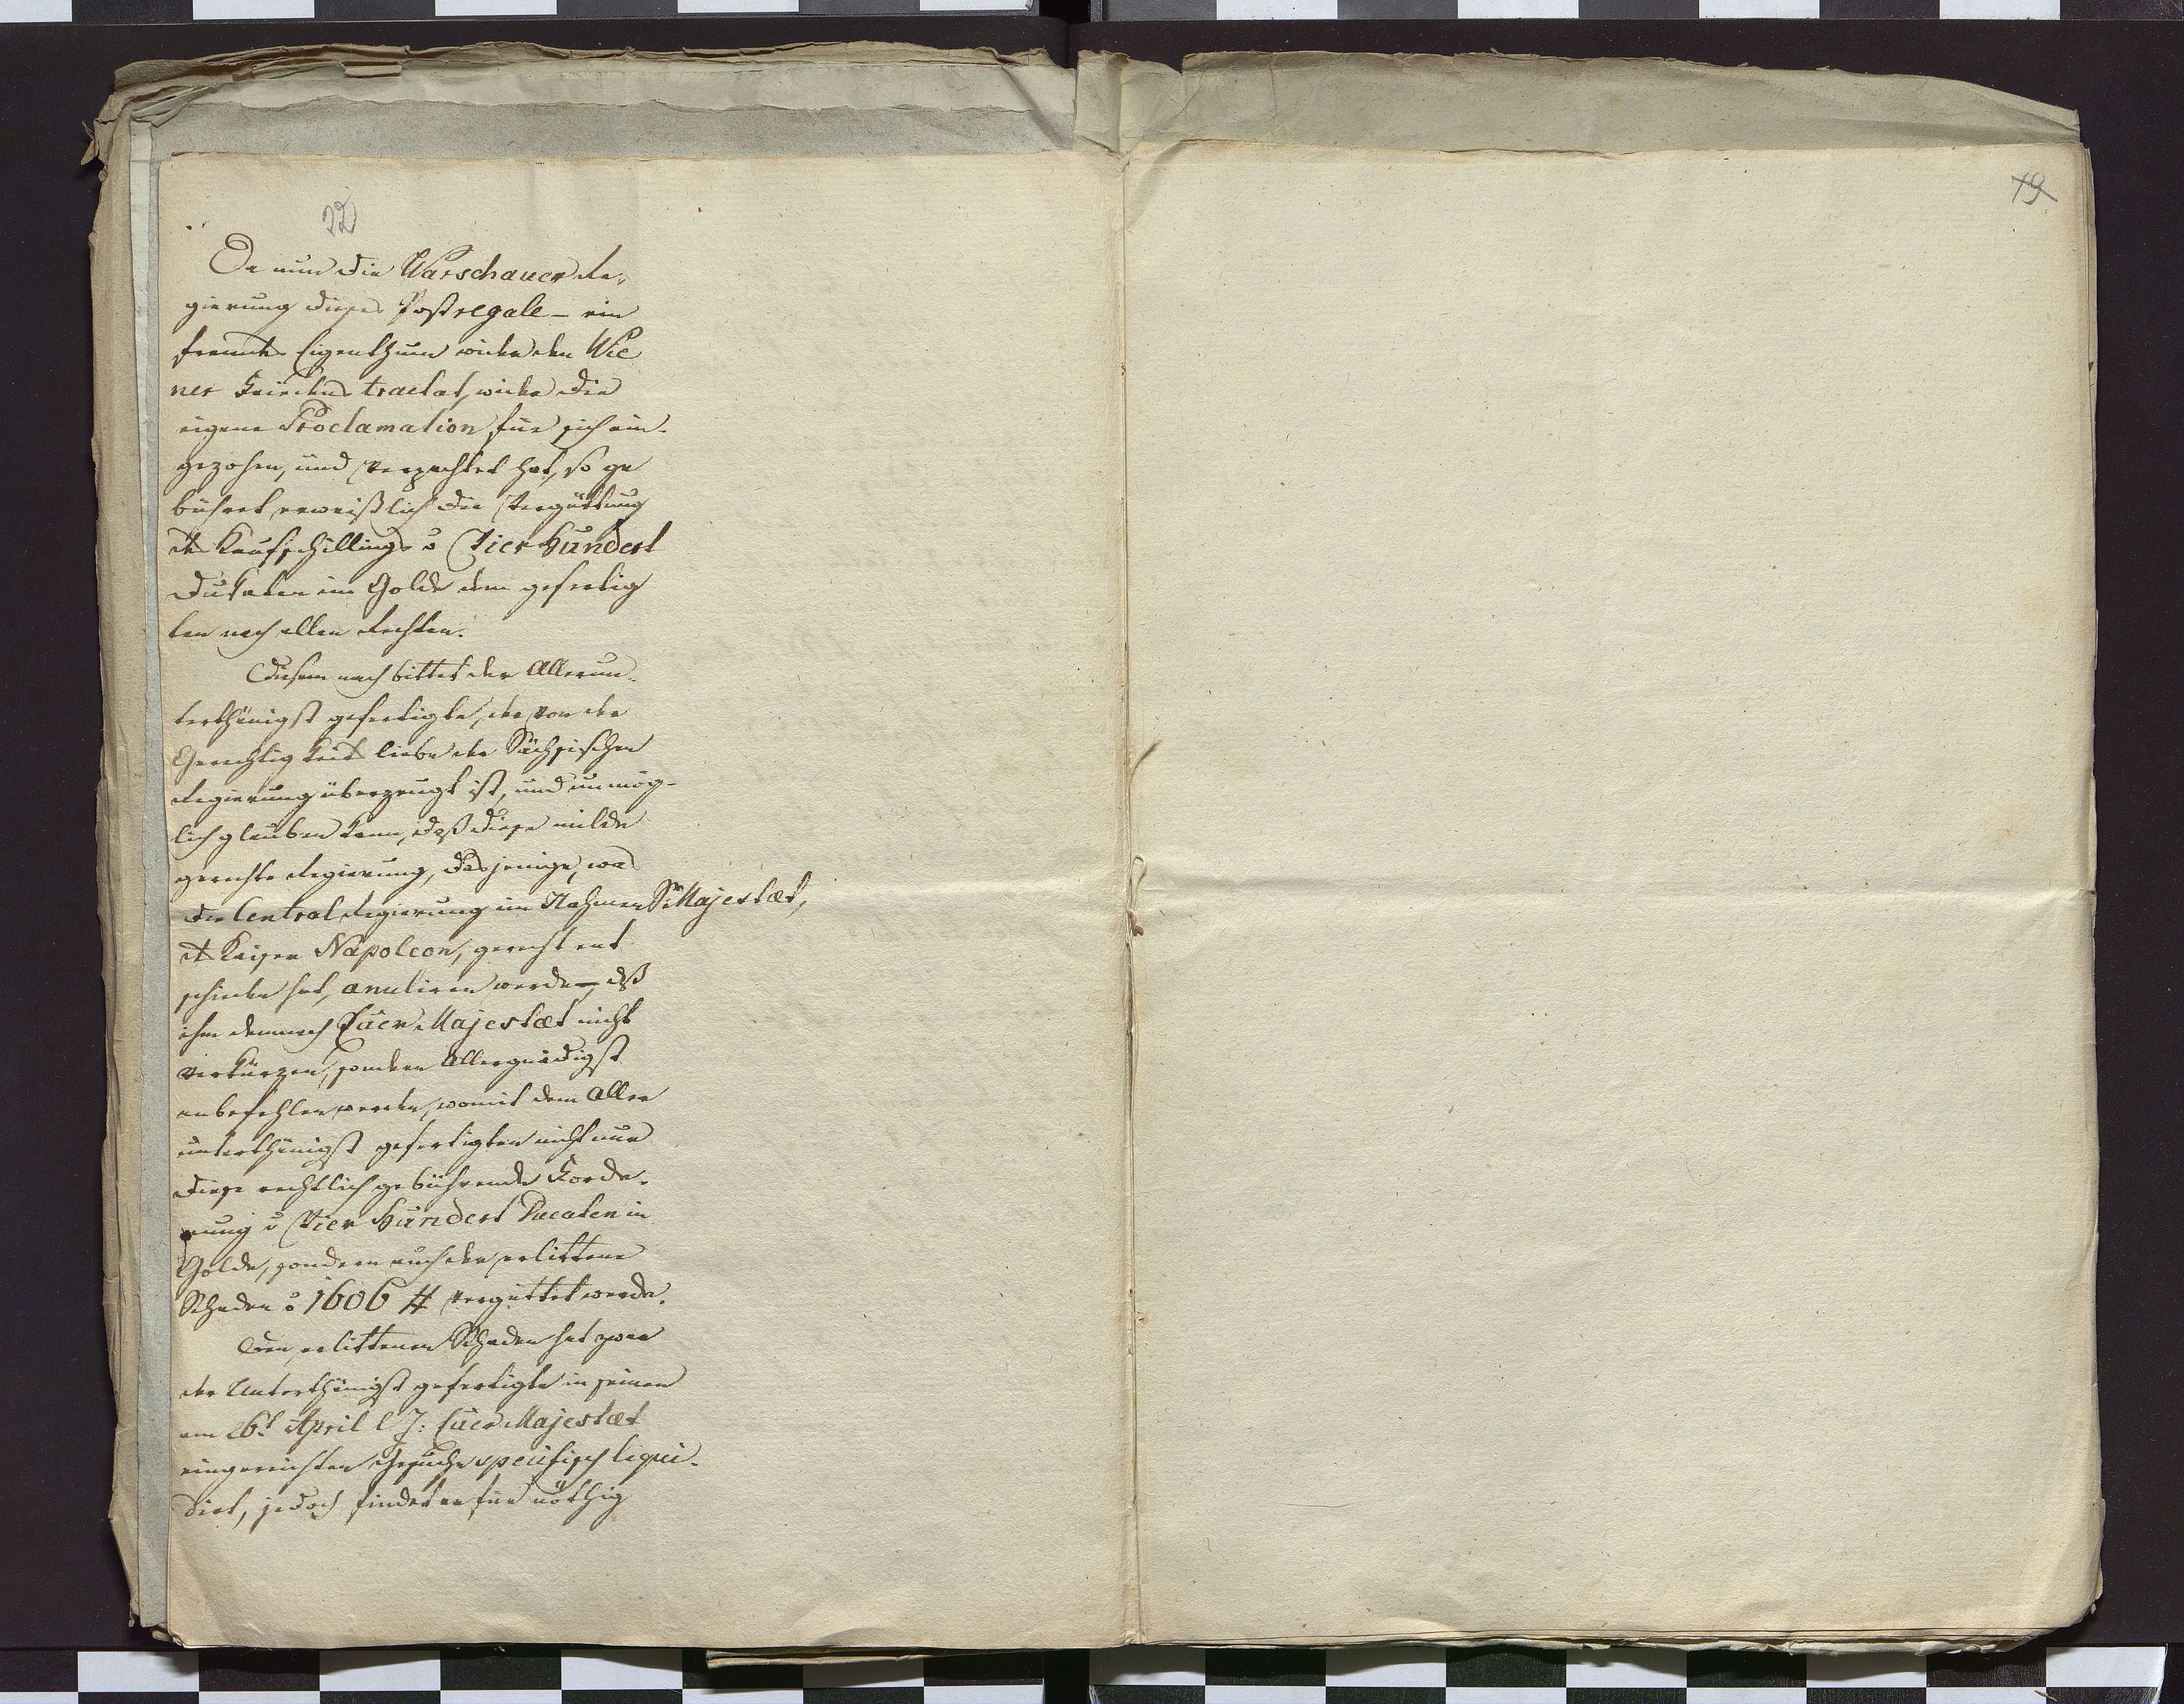 22
19
Da nun die Warschauer Re-
gierung dieses Postregale – ein
fremdes Eigenthum wieder den Wie
ner Friedens tractat, wieder die
eigene Proclamation für sich ein-
gezohen, und verpachtet hat, so ge
bührt erweißlich die Vergüttung
des Kaufschillings à Vier Hundert
Dukaten im Golde dem gefertig
ten nach allen Rechten.
Diesem nach bittet der Allerun-
terthänigst gefertigte, der von der
Gerechtigkeits liebe der Sächsischen
Regierung überzeugt ist, und unmög-
lich glauben kann, daß diese milde
gerechte Regierung, dasjenige, was
die Central Regierung im Nahmen Sr Majestæt,
des Kaiser Napoleon, gerecht ent
schieden hat, anuliren werde –, daß
ihm demnach Euer Majestæt nicht
verkürzen, sondern Allergnädigst
anbefehlen werden, womit dem Aller
unterthänigst gefertigten nicht nur
diese rechtlich gebührende Forde-
rung à Vier Hundert Ducaten in
Golde, sondern auch der erlittene
Schaden à 1606 # vergüttet werde.
Den erlittenen Schaden hat zwar
der Unterthänigst gefertigte in seinem
am 26t April l J: Euer Majestæt
eingereichten Gesuche specifisch liqui-
dirt, jedoch findet er für nöthig